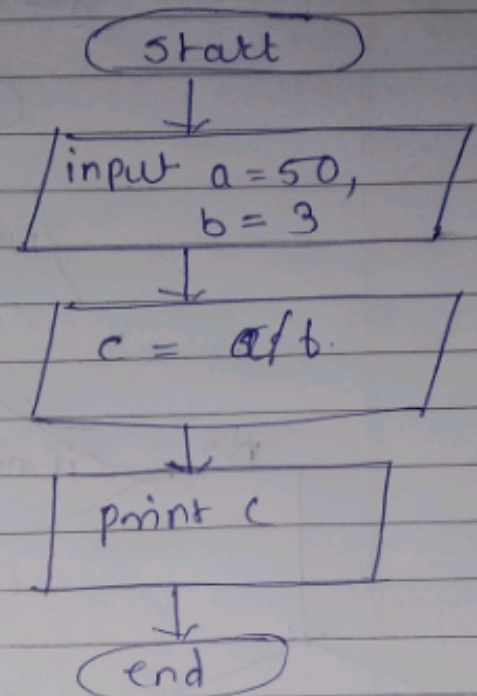 start
input a = 50,
b = 3
c = a/b.
print c
end